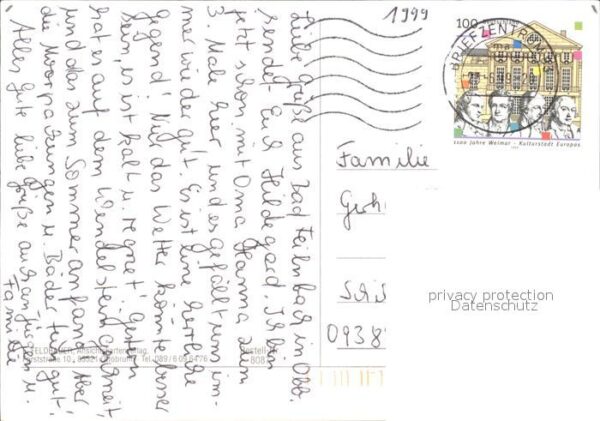 Liebe Grüße aus Bad Feilnbach in Obb.
sendet Euch Hildegard. Ich bin
jetzt schon mit Oma Hanna zum
3. Male hier und es gefällt uns im-
mer wieder gut. Es ist eine herrliche
Gegend! Nur das Wetter könnte besser
sein, es ist kalt u. regnet! Gestern
hat es auf dem Wendelstein geschneit
und das zum Sommeranfang. Aber
die Moorpackungen u. Bäder tun gut!
Alles Gute liebe Grüße an Hansjürgen u.
Familie
1999
100
BRIEFZENTRUM
1100 Jahre Weimar - Kulturstadt Europas
Familie
Gerh
Schis
0938
privacy protection
Datenschutz
Ansichtskartenverlag,
Tel. 089 / 6 09 64 76
Bestell-Nr.
808